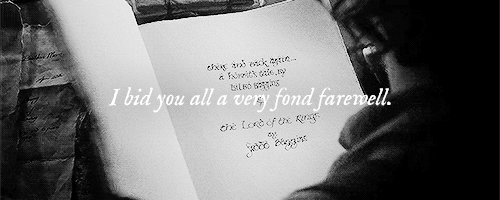 there and back again...
a hobbit's tale, by
bilbo baggins
I bid you all a very fond farewell.
the Lord of the Rings
by
frodo baggins